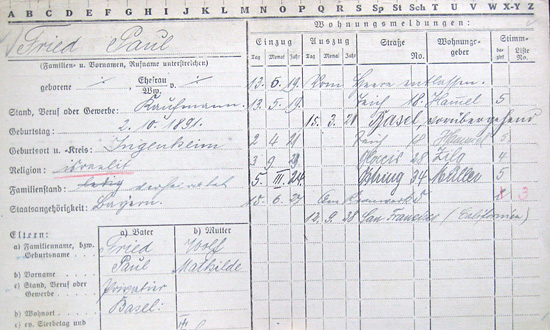 A B C D E F G H I J K L M N O P Q R S Sp St Sch T U V W X-Y Z
Fried Paul
(Familien- u. Vornamen, Rufname unterstreichen)
geborene Ehefrau Ww. v.
Stand, Beruf oder Gewerbe: Kaufmann.
Geburtstag: 2. 10. 1891.
Geburtsort u. -Kreis: Ingenheim
Religion: israelit
Familienstand: ledig verheiratet
Staatsangehörigkeit: Bayern.
Eltern: a) Vater b) Mutter
a) Familienname, bzw. Geburtsname Fried Wolf
b) Vorname Paul Mathilde
c) Stand, Beruf oder Gewerbe Privatier
b) Wohnort Basel.
e) ev. Sterbetag und
Wohnungsmeldungen:
Einzug Auszug Straße No. Wohnungsgeber Stimm-
Tag Monat Jahr Tag Monat Jahr Liste No.
13. 6. 19. Vom Heere entlassen.
13. 5. 19. 18. Hamel 5
15. 3. 21 Basel, vorübergehend
2 4 21 18 5
3 9 28 Zilg 4
5. III 24. 34 Müller 5
15. 6. 27. Am 8 3
12. 9. 28 San Francisco (Californien)